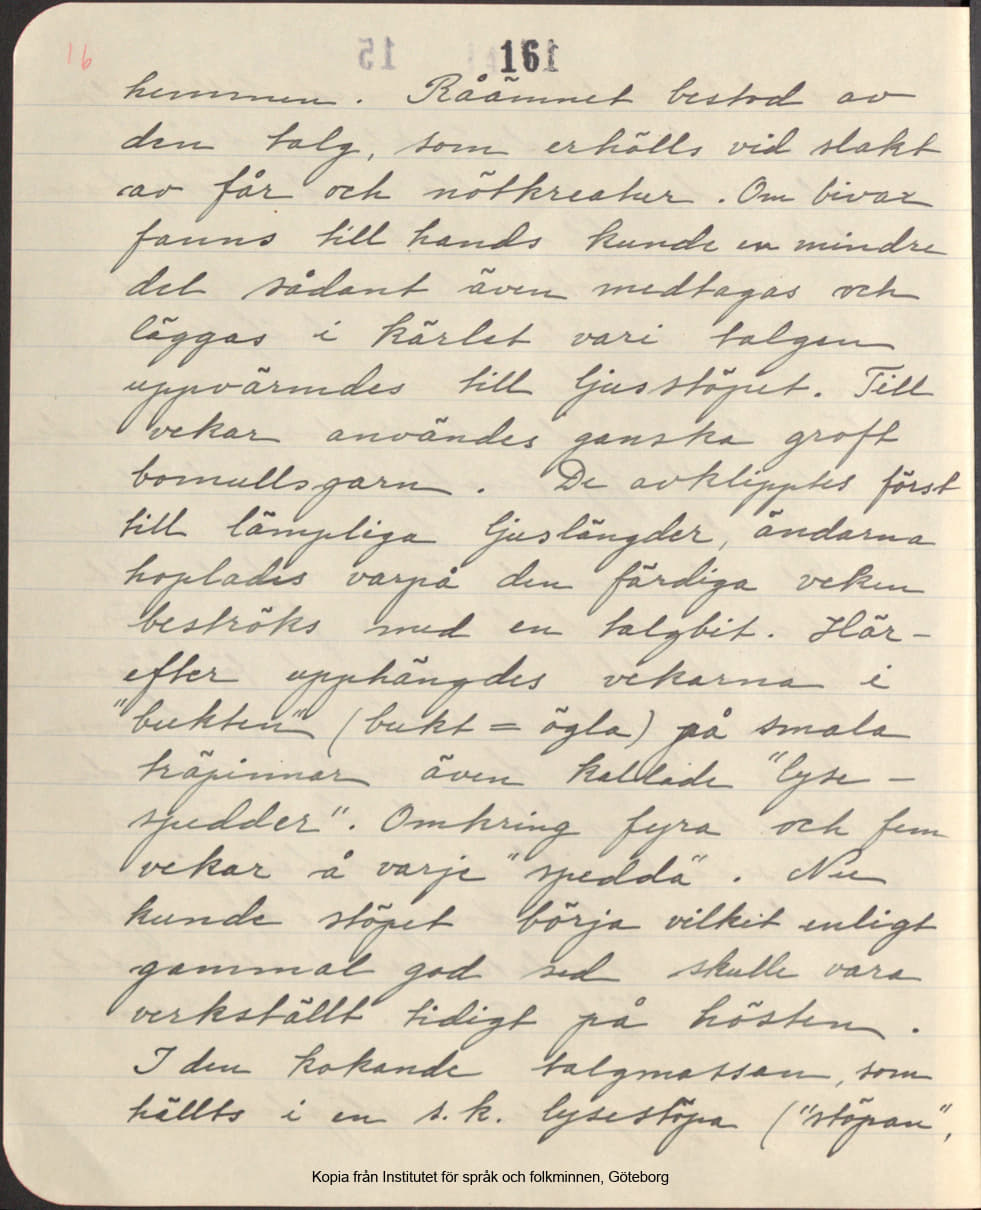 16
161
15
hemmen. Råämnet bestod av
den talg, som erhölls vid slakt
av får och nötkreatur. Om bivax
fanns till hands kunde en mindre
del sådant även medtagas och
läggas i kärlet vari talgen
uppvärmdes till ljusstöpet. Till
vekar användes ganska groft
bomullsgarn. De avklipptes först
till lämpliga ljuslängder, ändarna
hoplades varpå den färdiga veken
beströks med en talgbit. Här-
efter upphängdes vekarna i
"bukten" (bukt = ögla) på smala
träpinnar även kallade "lyse-
spedder". Omkring fyra och fem
vekar å varje "spedda". Nu
kunde stöpet börja vilket enligt
gammal god sed skulle vara
verkställt tidigt på hösten.
I den kokande talgmassan, som
hällts i en s.k. lysestöpa ("stöpan",
Kopia från Institutet för språk och folkminnen, Göteborg